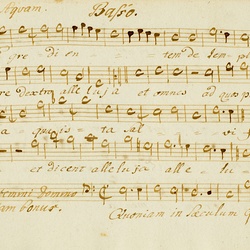 Aquam. Basso.
gre di en tem de tem pl
re dextro alleluja et omnes ad quos p
a quis ta sal vi
et dicent alleluja alle lu
temini domino
am bonus. Quoniam in Sæculum